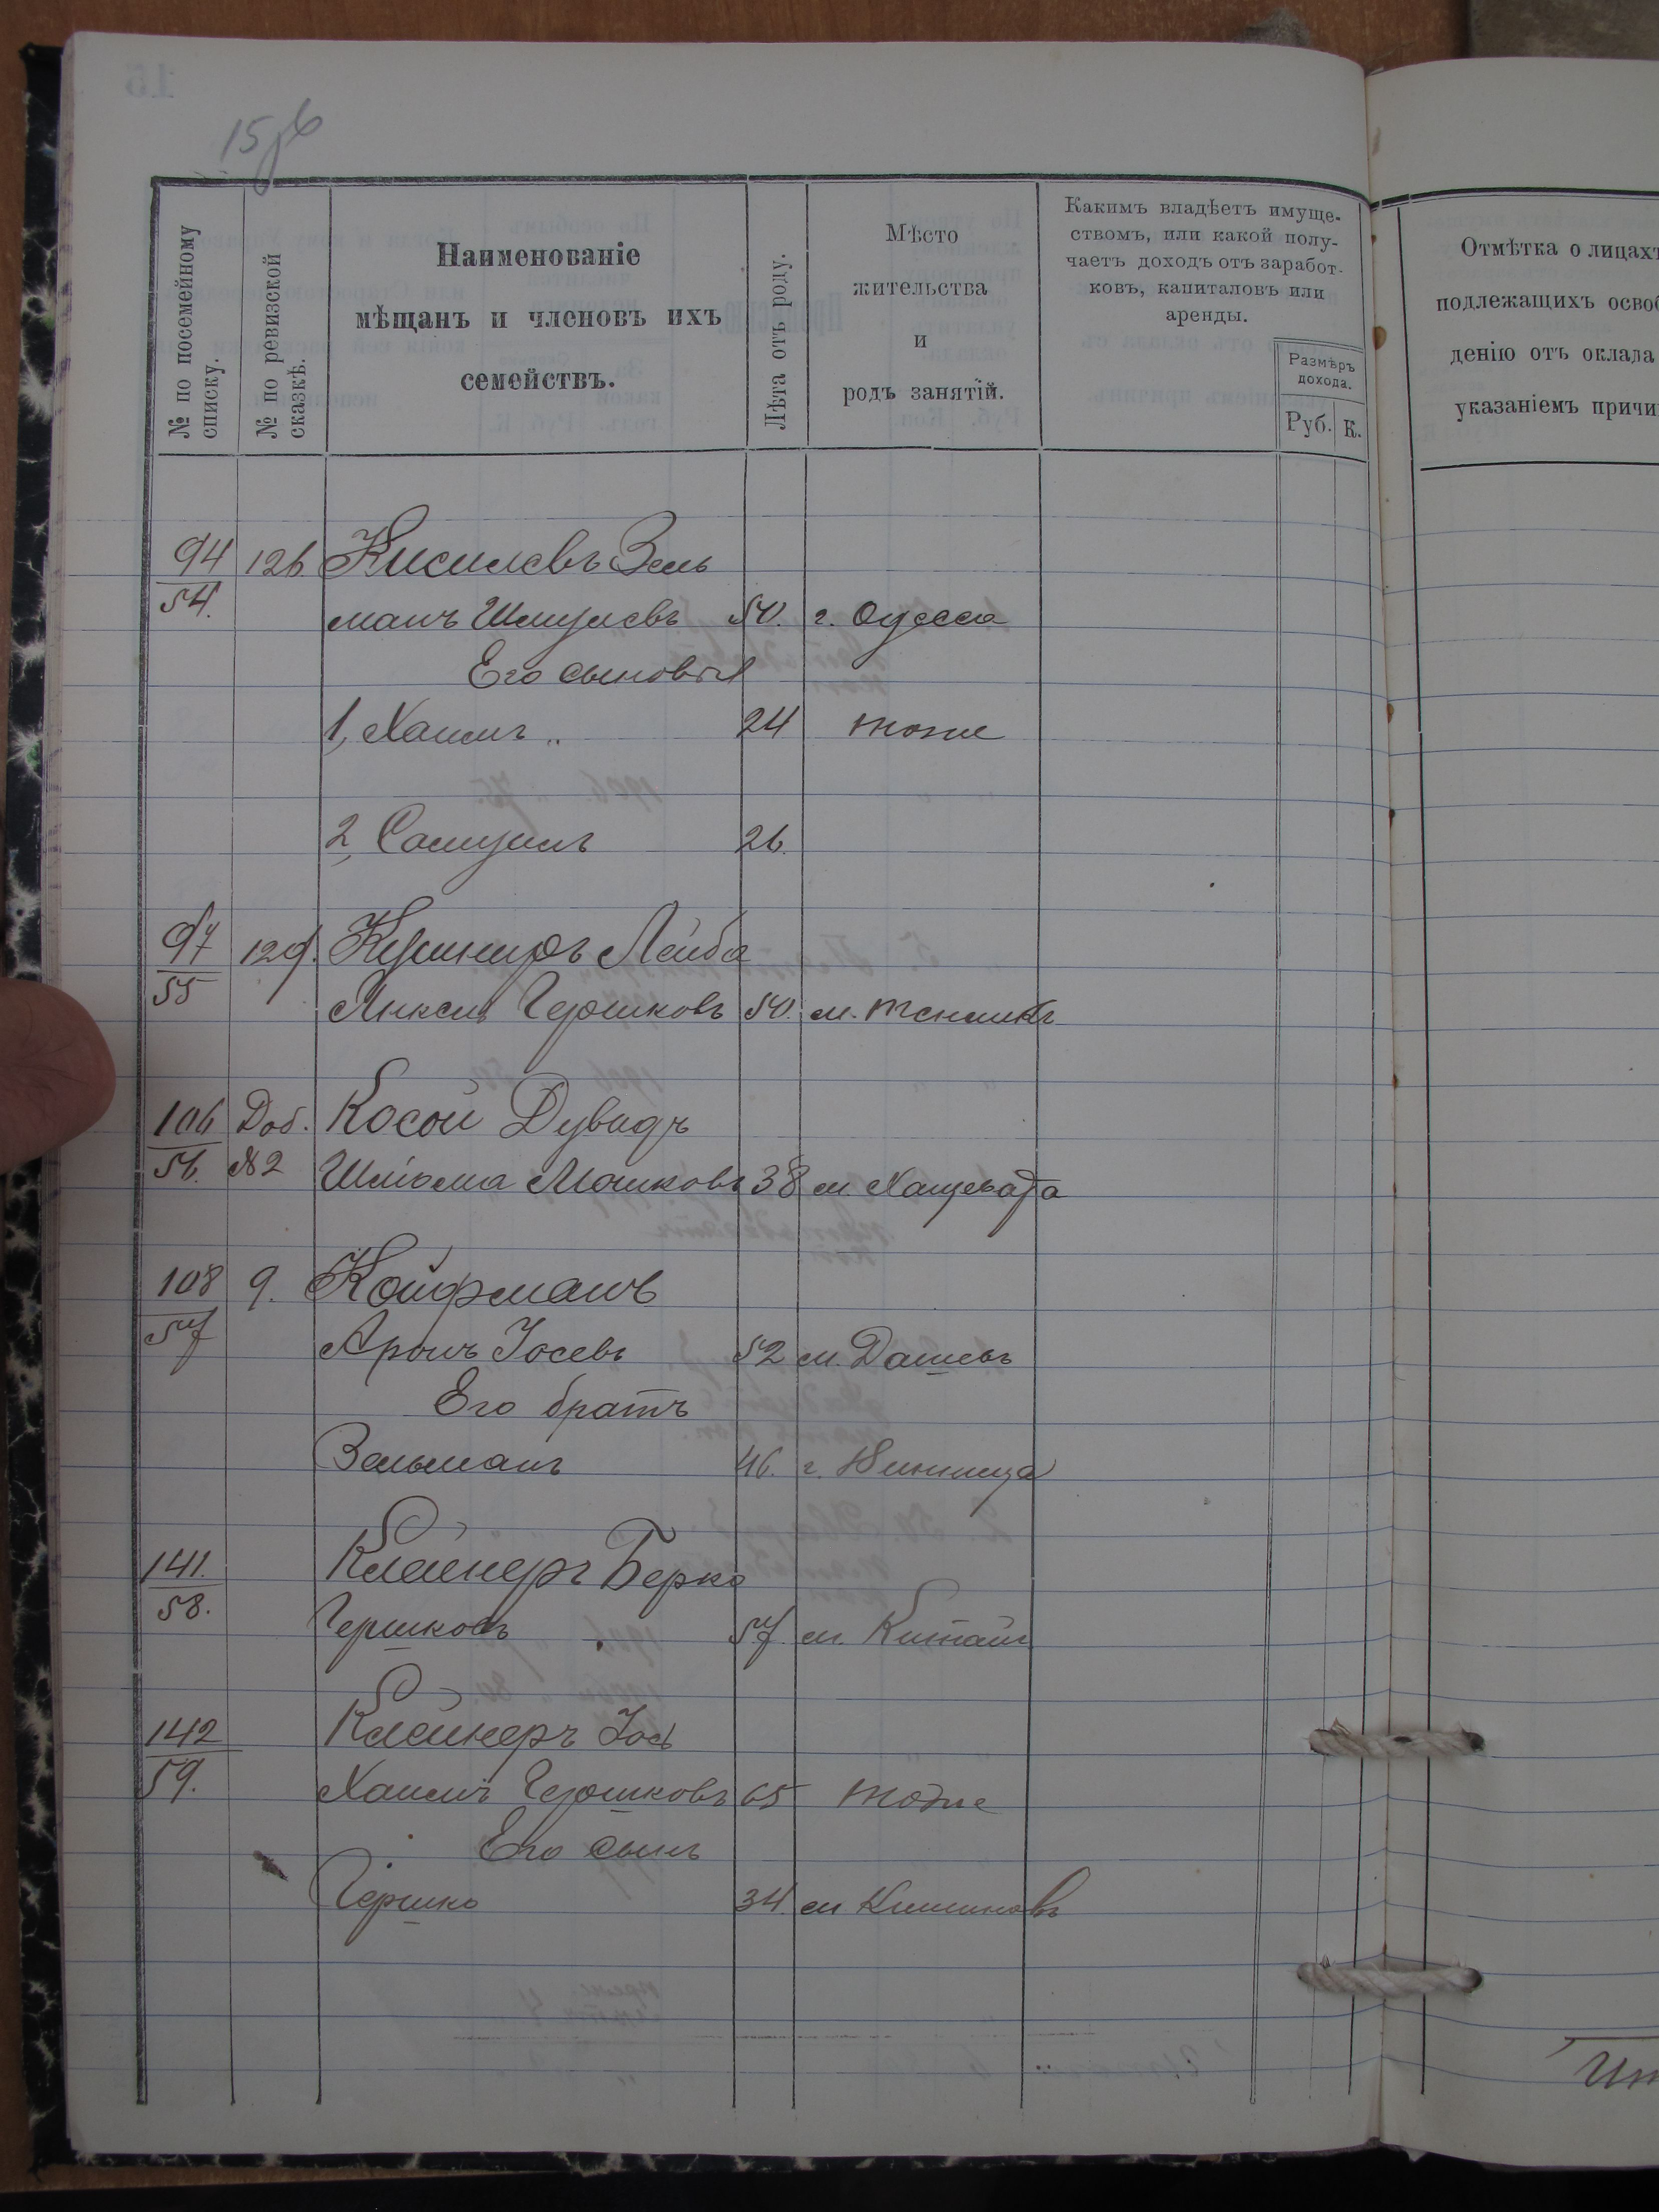 15
№ по посемейному списку.
№ по ревизской сказкѣ.
Наименованіе
мѣщанъ и членовъ ихъ
семействъ.
Лѣта отъ роду.
Мѣсто
жительства
и
родъ занятій.
Какимъ владѣетъ имуще-
ствомъ, или какой полу-
чаетъ доходъ отъ заработ-
ковъ, капиталовъ или
аренды.
Размѣръ
дохода.
Руб. К.
Отмѣтка о лицахъ
подлежащихъ освоб
денію отъ оклада
указаніемъ причи
94 126 Кисилевъ Зель
54. манъ Шмулевъ 50. г. Одесса
Его сыновья
1, Хаимъ „ 24 тоже
2, Самуилъ 26.
97 129. Кушниръ Лейба
55 Янкель Гершковъ 50. м.
106 Доб. Косой Дувидъ
56. №2 Шлёма Мошковъ 38 м. Хащевата
108 9. Койфманъ
57 Аронъ Іосевъ 52 м. Дашевъ
Его братъ
Зельманъ 46. г. Винница
141. Клейнеръ Берко
58. Гершковъ 57. м. Китай
142 Клейнеръ Іось
59. Хаимъ Гершковъ 65 тоже
Его сынъ
Гершко 34. м Кишиновъ
Ит